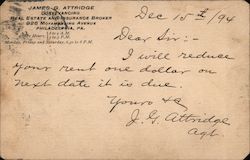 JAMES G. ATTRIDGE
CONVEYANCING
REAL ESTATE AND INSURANCE BROKER
PHILADELPHIA, PA.
Monday, Friday and Saturday, 6.30 to 8 P.M.
Dec 15th/94
Dear Sir:-
I will reduce
your rent one dollar on
next date it is due.
Yours &c
J. G. Attridge
Agt